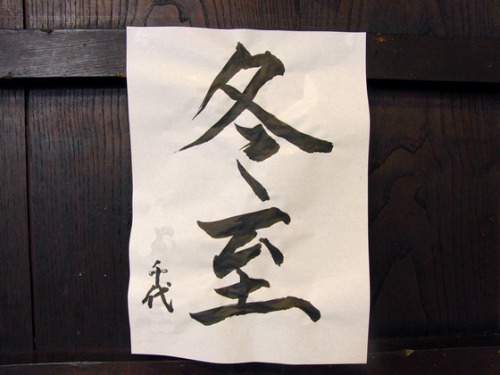 冬至
千代